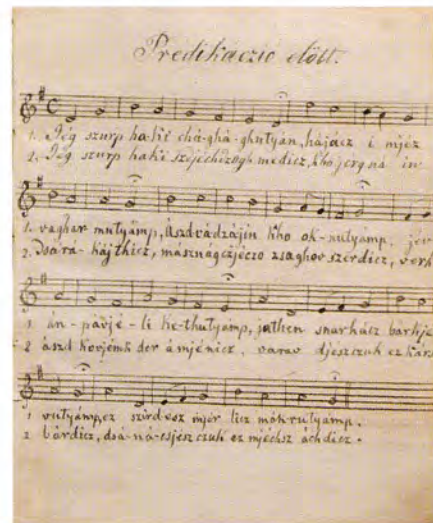 Predikáczio elött.
1. Jég szurp ha-ki chá-ghá-ghutyán, hájácz i mjéz
2. Jég szurp haki szejéchizogh medicz, kho jerg ná in
1. vaghar mutyámp, Ászdvádzájin kho ok-nutyámp. jér
2. Dsárá-kájthicz, másznágczjéczo zsaghov szerdicz, verh
1 án-párjé-li ke-thutyamp, jethen snarhácz barhje
2 ászd korjémk der ámjénicz. varav djeszczuk ez kárs
1 vutyámp, ez szird-esz mjér licz mák-rutyamp.
2 bárdicz, dsá-ná-csjész czuk ez mjéchsz áchdicz.